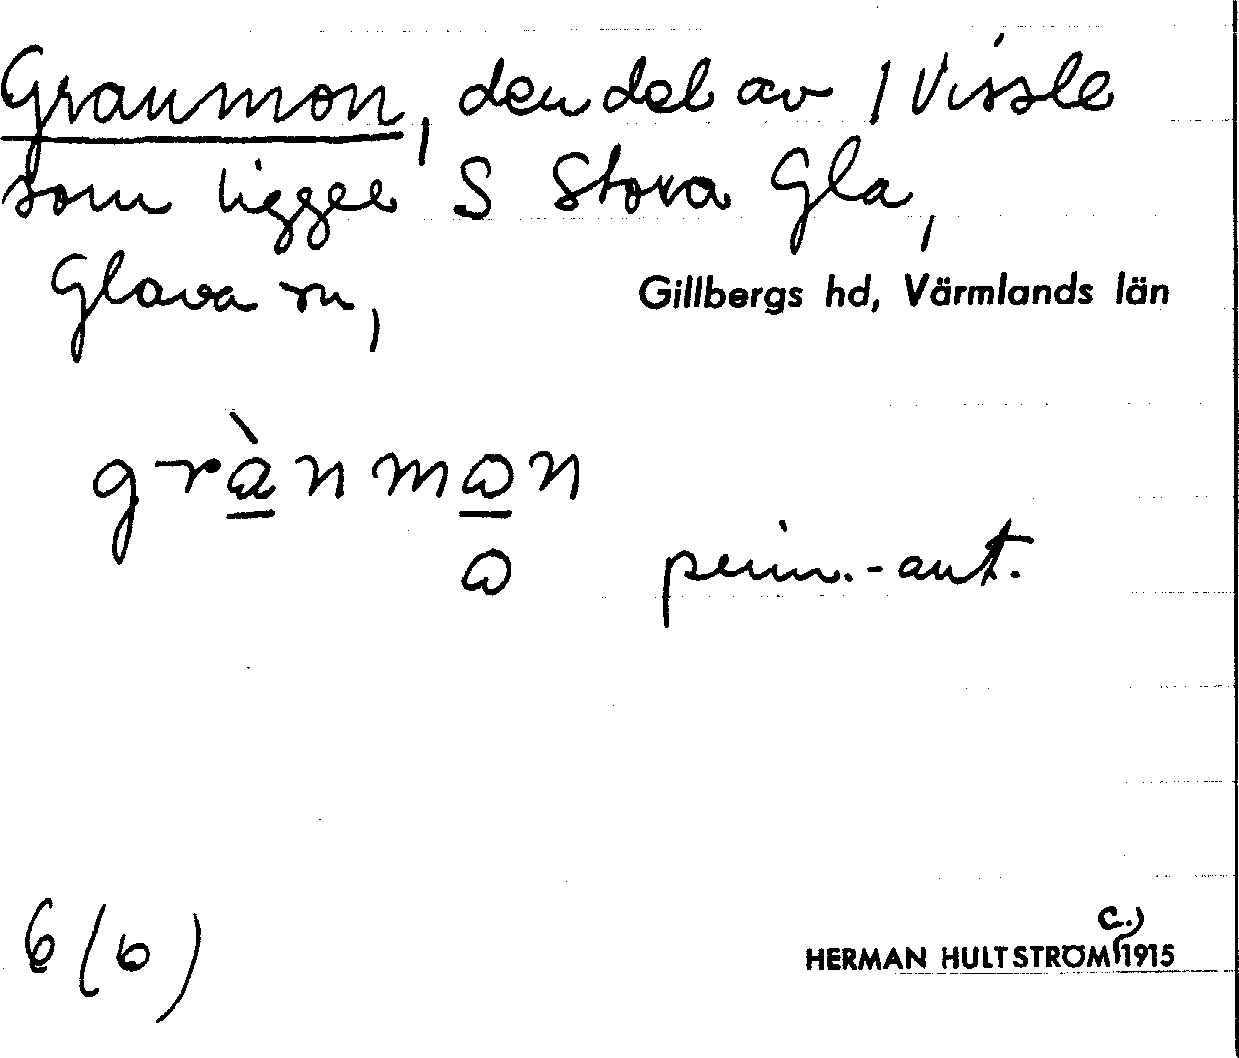 Granmon, den del av 1 Vissle
som ligger S Stora Gla,
Glava sn,
Gillbergs hd, Värmlands län
grànmωn
ω
penin.-ant.
6 (6)
c.)
HERMAN HULTSTRÖM 1915